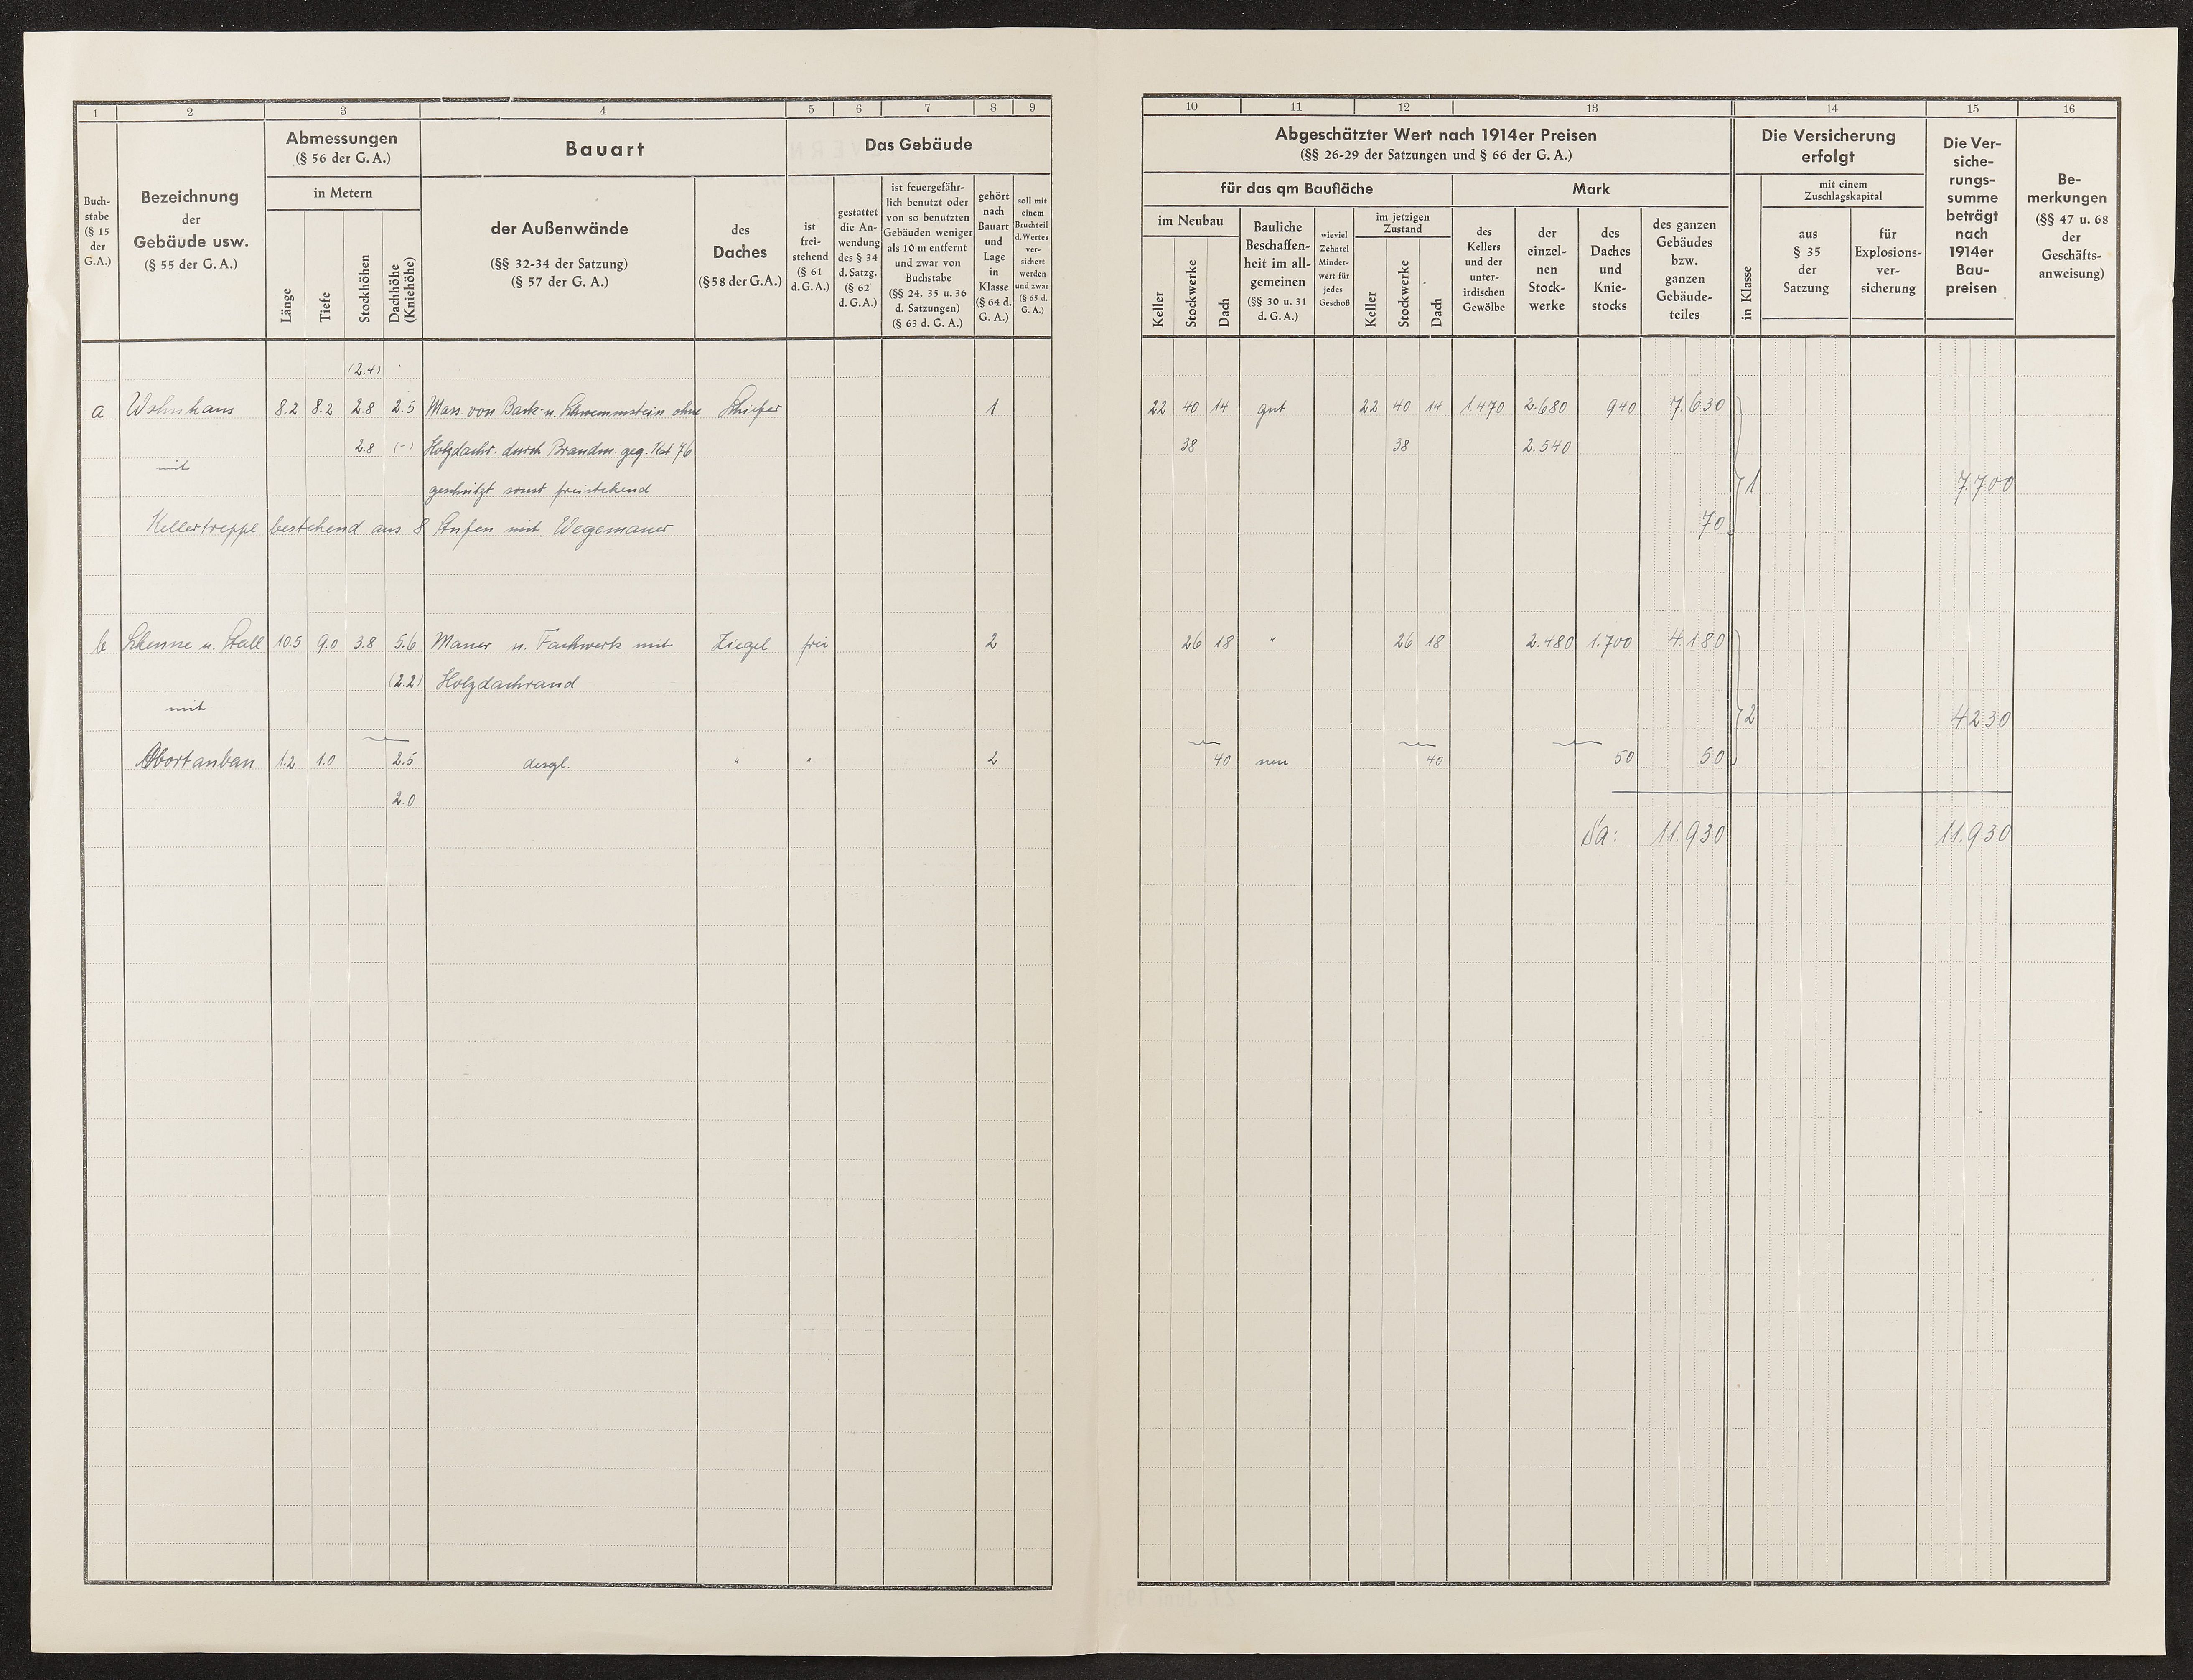 1 2 3 4 5 6 7 8 9
Buch-
stabe
(§ 15
der
G.A.)
Bezeichnung
der
Gebäude usw.
(§ 55 der G. A.)
Abmessungen
(§ 56 der G. A.)
in Metern
Länge
Tiefe
Stockhöhen
Dachhöhe
(Kniehöhe)
Bauart
der Außenwände
(§§ 32-34 der Satzung)
(§ 57 der G. A.)
des
Daches
(§ 58 der G.A.)
Das Gebäude
ist
frei-
stehend
(§ 61
d. G. A.)
gestattet
die An-
wendung
des § 34
d. Satzg.
(§ 62
d. G. A.)
ist feuergefähr-
lich benutzt oder
von so benutzten
Gebäuden weniger
als 10 m entfernt
und zwar von
Buchstabe
(§§ 24, 35 u. 36
d. Satzungen)
(§ 63 d. G. A.)
gehört
nach
Bauart
und
Lage
in
Klasse
(§ 64 d.
G. A.)
soll mit
einem
Bruchteil
d. Wertes
ver-
sichert
werden
und zwar
(§ 65 d.
G. A.)
(2.4)
a Wohnhaus 8.2 8.2 2.8 2.5 Mass. von Back- u. Schwemmstein ohne Schiefer 1
2.8 (-) Holzdachr. durch Brandm. geg. Kat 76
mit
geschützt sonst freistehend
Kellertreppe bestehend aus 8 Stufen mit Wegemauer
b Scheune u. Stall 10.5 9.0 3.8 5.6 Mauer u. Fachwerk mit Ziegel frei 2
(2.2) Holzdachrand
mit
Abortanbau 1.2 1.0 2.5 desgl. " " 2
2.0
10 11 12 13 14 15 16
Abgeschätzter Wert nach 1914er Preisen
(§§ 26-29 der Satzungen und § 66 der G. A.)
für das qm Baufläche
im Neubau
Keller
Stockwerke
Dach
Bauliche
Beschaffen-
heit im all-
gemeinen
(§§ 30 u. 31
d. G. A.)
wieviel
Zehntel
Minder-
wert für
jedes
Geschoß
im jetzigen
Zustand
Keller
Stockwerke
Dach
Mark
des
Kellers
und der
unter-
irdischen
Gewölbe
der
einzel-
nen
Stock-
werke
des
Daches
und
Knie-
stocks
des ganzen
Gebäudes
bzw.
ganzen
Gebäude-
teiles
Die Versicherung
erfolgt
in Klasse
mit einem
Zuschlagskapital
aus
§ 35
der
Satzung
für
Explosions-
ver-
sicherung
Die Ver-
siche-
rungs-
summe
beträgt
nach
1914er
Bau-
preisen
Be-
merkungen
(§§ 47 u. 68
der
Geschäfts-
anweisung)
22 40 14 gut 22 40 14 1.470 2.680 940 7.630
38 38 2.540
1 7.700
70
26 18 " 26 18 2.480 1.700 4.180
2 4230
40 neu 40 50 50
Sa: 11.930 11.930